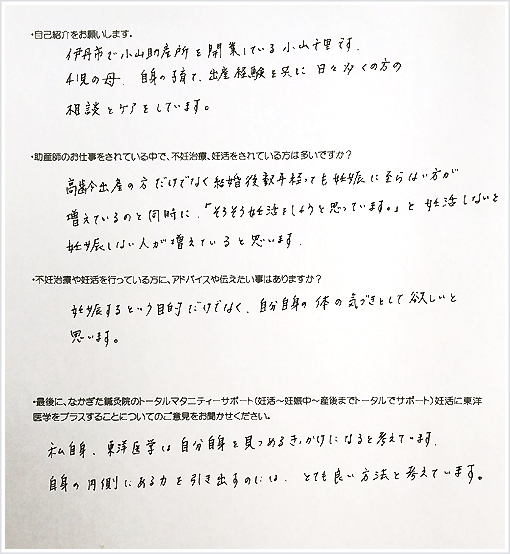 ・自己紹介をお願いします。
伊丹市で小山助産所を開業している小山千里です。
4児の母、自身の子育て、出産経験を共に日々多くの方の
相談とケアをしています。
・助産師のお仕事をされている中で、不妊治療、妊活をされている方は多いですか？
高齢出産の方だけでなく結婚後数年経っても妊娠に至らない方が
増えているのと同時に、「そろそろ妊活をしようと思っています。」と妊活しないと
妊娠しない人が増えていると思います。
・不妊治療や妊活を行っている方に、アドバイスや伝えたい事はありますか？
妊娠するという目的だけでなく、自分自身の体の気づきとして欲しいと
思います。
・最後に、なかぎた鍼灸院のトータルマタニティーサポート（妊活～妊娠中～産後までトータルでサポート）妊活に東洋
医学をプラスすることについてのご意見をお聞かせください。
私自身、東洋医学は自分自身を見つめるきっかけになると考えています。
自身の内側にある力を引き出すのには、とても良い方法と考えています。